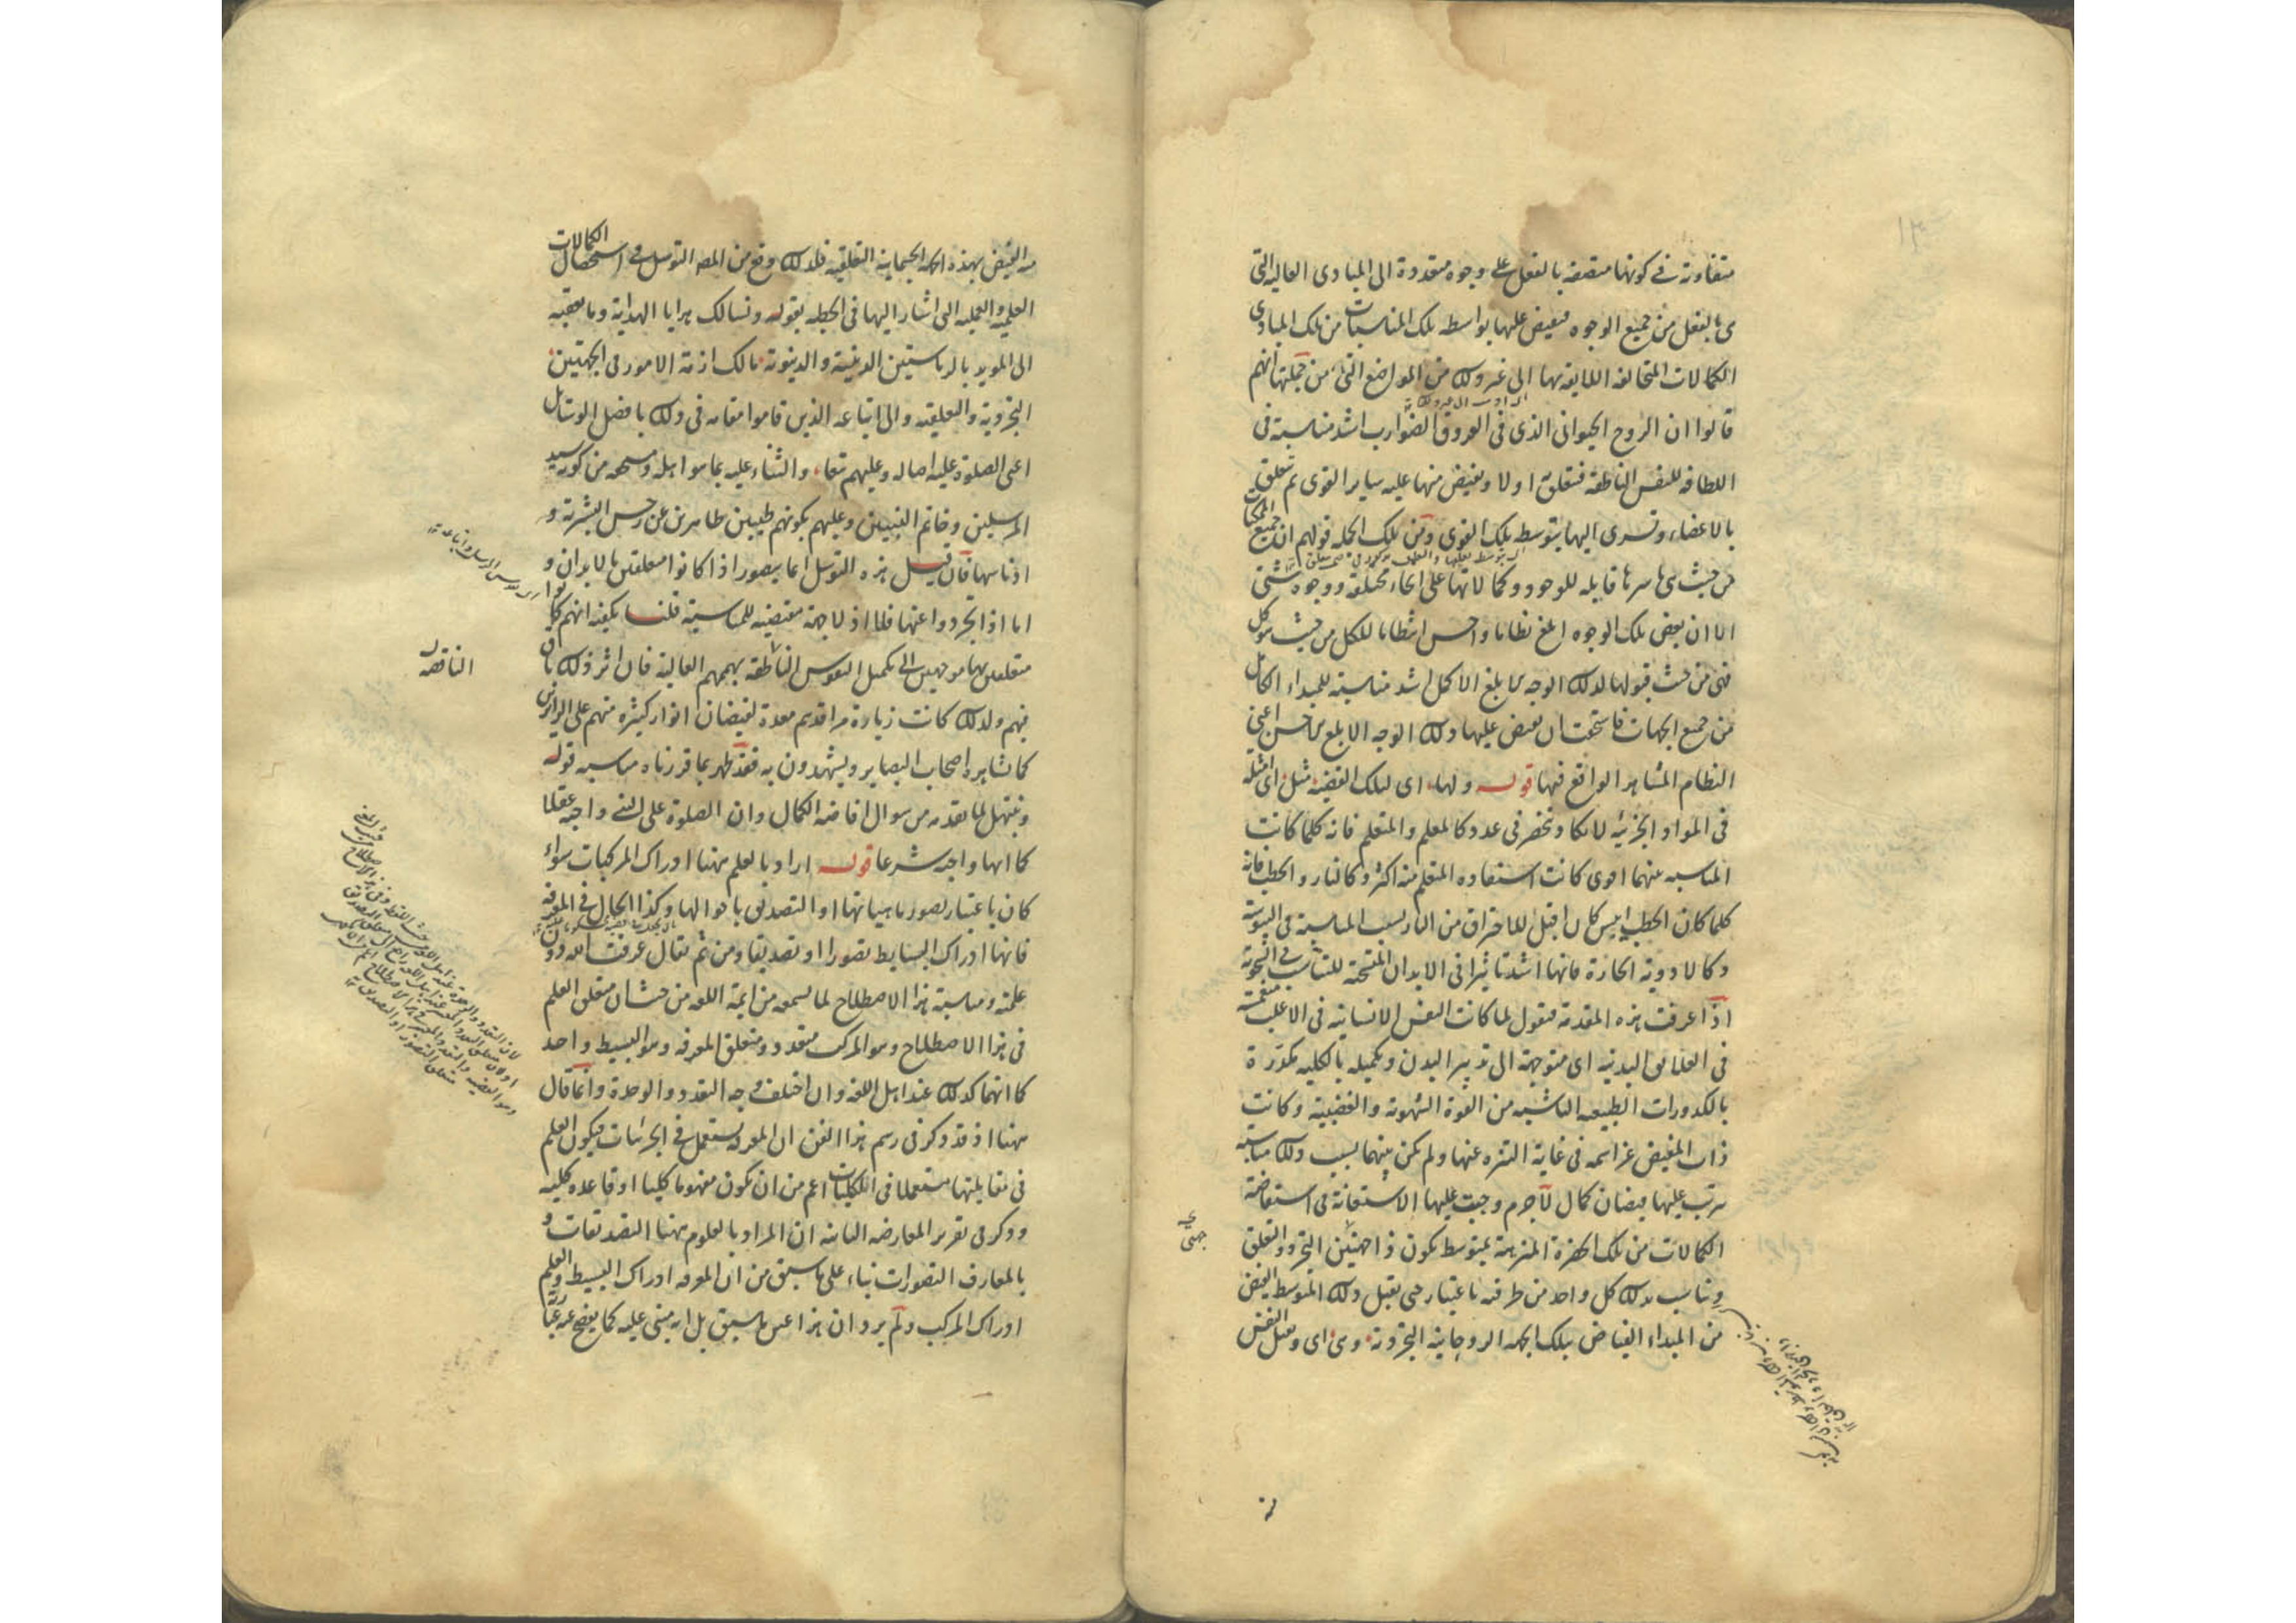 متفاوتة في كونها متصفة بالفعل على وجوه متعددة الى المبادى العالية التى
هى بالفعل من جميع الوجوه فيفيض عليها بواسطة تلك المناسبات من تلك المبادى
الكمالات المتخالفة اللايقة بها الى غير ذلك من المواضع التى من جملتها انهم
قالوا ان الروح الحيوانى الذى فى العروق الضوارب اشد مناسبة فى
اللطافة للنفس الناطقة فتتعلق به اولا ويفيض منها عليه ساير القوى ثم تتعلق
بالاعضاء وتسرى اليها بتوسط تلك القوى ومن تلك الجملة قولهم ان جميع الممكنات
من حيث هى باسرها قابلة للوجود وكمالاتها على انحاء مختلفة ووجوه شتى
الا ان بعض تلك الوجوه ابلغ نظاما واحسن انتظاما للكل من حيث هو كل
فهى من حيث قبولها لذلك الوجه الابلغ الاكمل اشد مناسبة للمبداء الكامل
من جميع الجهات فاستحقت ان يفيض عليها ذلك الوجه الابلغ الاحسن اعنى
النظام المشاهد الواقع فيها قوله ولها اى لتلك القضية مثل اى امثلة
فى المواد الجزئية لا تكاد تنحصر فى عدد كالمعلم والمتعلم فانه كلما كانت
المناسبة بينهما اقوى كانت استفادة المتعلم منه اكثر وكالنار والحطب فانه
كلما كان الحطب ايبس كان اقبل للاحتراق من النار بسبب المناسبة فى اليبوسة
وكالادوية الحارة فانها اشد تاثيرا فى الابدان المتسخنة للتناسب فى السخونة
اذا عرفت هذه المقدمة فنقول لما كانت النفس الانسانية فى الاغلب منغمسة
فى العلايق البدنية اى متوجهة الى تدبير البدن وتكميله بالكلية مكدرة
بالكدورات الطبيعية الناشية من القوة الشهوية والغضبية وكانت
ذات المفيض عز اسمه فى غاية التنزه عنها ولم يكن بينهما بسبب ذلك مناسبة
يترتب عليها فيضان كمال لاجرم وجبت عليها الاستعانة فى استفاضة
الكمالات من تلك الحضرة المنزهة بمتوسط يكون ذا جهتين التجرد والتعلق
ويناسب بذلك كل واحد من طرفيه باعتبار حتى يقبل ذلك المتوسط الفيض
من المبداء الفياض بتلك الجهة الروحانية التجردية وهى اى وتقبل النفس
منه الفيض بهذه الجهة الجسمانية التعلقية فلذلك وقع من المص التوسل فى استحصال الكمالات
العلمية والعملية التى اشار اليها فى الخطبة بقوله ونسالك هدايا الهداية وما يعقبه
الى المويد بالرياستين الدينية والدنيوية مالك ازمة الامور فى الجهتين
التجردية والتعلقية والى اتباعه الذين قاموا مقامه فى ذلك بافضل الوسائل
اعنى الصلوة عليه اصالة وعليهم تبعا والثناء عليه بما هو اهله ومستحقه من كونه سيد
المرسلين وخاتم النبيين وعليهم بكونهم طيبين طاهرين عن رجس البشرية و
ادناسها فان قيل هذه التوسل انما يتصور اذا كانوا متعلقين بالابدان و
اما اذا تجردوا عنها فلا اذ لا جهة مقتضية للمناسبة قلنا يكفيه انهم كانوا
متعلقين بها متوجهين الى تكميل النفوس الناطقة بهممهم العالية فان اثر ذلك باق
فيهم ولذلك كانت زيارة مراقدهم معدة لفيضان انوار كثيرة منهم على الزائرين
كما يشاهده اصحاب البصاير ويشهدون به فقد ظهر بما قررناه مناسبة قوله
ونبتهل لما تقدمه من سوال افاضة الكمال وان الصلوة على النبى واجبة عقلا
كما انها واجبة شرعا قوله اراد بالعلم ههنا ادراك المركبات سواء
كان باعتبار تصور ماهياتها او التصديق باحوالها وكذا الحال فى المعرفة
فانها ادراك البسايط تصورا او تصديقا ومن ثم يقال عرفت الله دون
علمته ومناسبة هذا الاصطلاح لما يسمع من ايمة اللغة من حيث ان متعلق العلم
فى هذا الاصطلاح وهو المركب متعدد ومتعلق المعرفة وهو البسيط واحد
كما انهما كذلك عند اهل اللغة وان اختلف وجه التعدد والوحدة وانما قال
ههنا اذ قد ذكر فى رسم هذا الفن ان المعرفة يستعمل فى الجزئيات فيكون العلم
فى مقابلتها مستعملا فى الكليات اعم من ان يكون مفهوما كليا او قاعدة كلية
وذكر فى تقرير المعارضة الثانية ان المراد بالعلوم ههنا التصديقات و
بالمعارف التصورات بناء على ما سبق من ان المعرفة ادراك البسيط والعلم
ادراك المركب ولم يرد ان هذا عين ما سبق بل انه مبنى عليه كما يفصح عنه عبارته
الناقصة